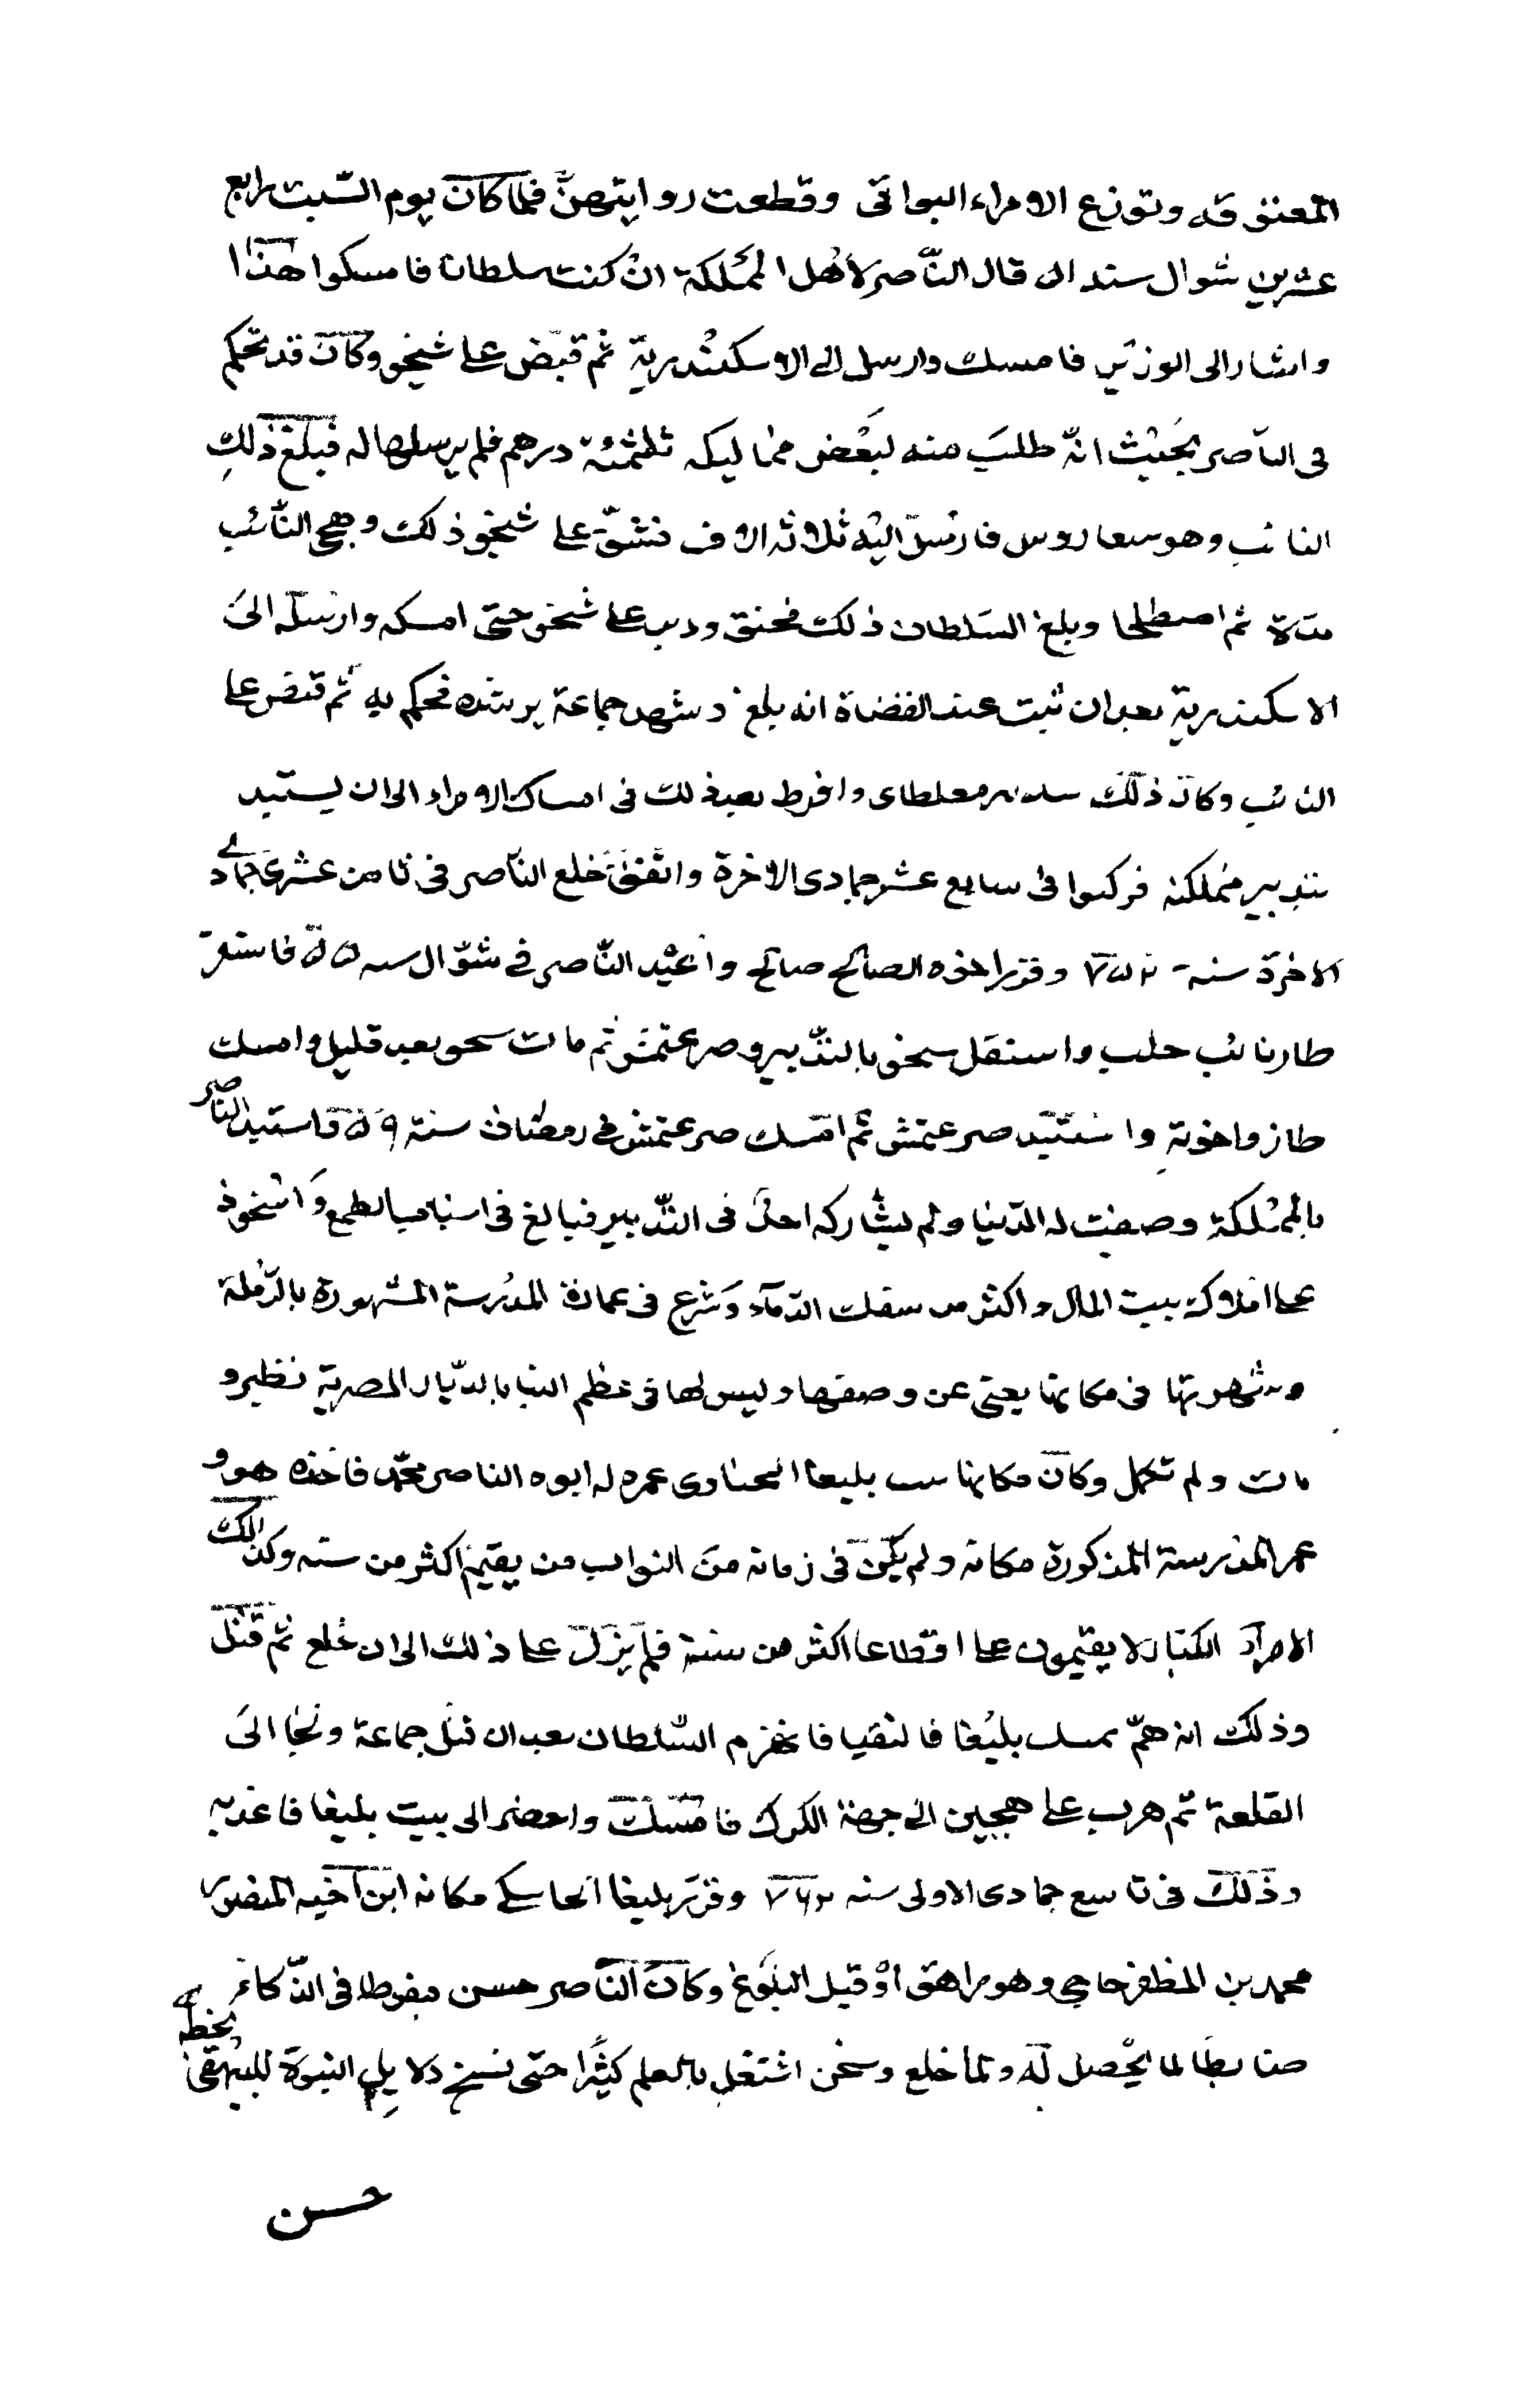 المعنق قه وتوزع الامراء البواقى وقطعت رواتبهن فلما كان يوم السبت رابع
عشرين شوال سنة اه قال الناصر لأهل المملكة ان كنت سلطانا فامسكوا هذا
واشار الى الوزير فامسك وارسل الى الاسكندرية ثم قبض على شيخو وكان قد تحكم
فى الناصر بحيث انه طلب منه لبعض مماليكه ثلثمئة درهم فلم يرسلها له فبلغ ذلك
النائب وهو سعاروس فارسل اليه ثلاثة الاف فشق على شيخو ذلك وهجر النائب
مدة ثم اصطلحا وبلغ السلطان ذلك فحنق ودبب على شيخو حتى امسكه وارسله الى
الاسكندرية بعد ان ثبت عند القضاة انه بلغ وشهد جماعة برشده فحكم به ثم قبض على
النائب وكان ذلك مغلطاى وافرط بعد ذلك فى امساك الامراء الى ان يستبد
بتدبير مملكته فركبوا فى سابع عشر جمادى الاخرة واتفق خلع الناصر فى ثامن عشرى جمادى
الاخرة سنة ٧٥٢ وقرر اخوه الصالح صالح واعيد الناصر فى شوال سنه ٥٥ فاستقر
طاز نائب حلب واستقل سيخو بالتدبير وصرغتمش ثم مات سحو بعد قليل وامسك
طاز واخوته واستبد صرغتمش ثم امسك صرغتمش فى رمضان سنة ٥٩ فاستبد الناصر
بالمملكة وصفت له الدنيا ولم يشاركه احد فى التدبير فبالغ فى اسباب الطمع واستحوذ
على املاك بيت المال واكثر من سفك الدماء وشرع فى عمارة المدرسة المشهورة بالرملة
وشهرتها فى مكانها يغنى عن وصفها وليس لها فى عظم البنا بالديار المصرية نظير و
مات ولم تكمل وكان مكانها بيت يلبغا اليحناوى عمره له ابوه الناصر محمد فاخذه هو و
عمر المدرسة المذكورة مكانه ولم يكن فى زمانه من النواب من يقيم اكثر من سنه وكذلك
الامراء الكبار لا يقيمون على اقطاع اكثر من سنة فلم يزل على ذلك الى ان خلع ثم قتل
وذلك انه هم بمسك يلبغا فالتقيا فانهزم السلطان بعد ان قتل جماعة ونجا الى
القلعة ثم هرب على هجين الى جهة الكرك فامسك واحضر الى بيت يلبغا فاعدمه
وذلك فى تاسع جمادى الاولى سنه ٧٦٢ وقرر يلبغا الخاسكى مكانه ابن اخيه المنصور
محمد بن المظفر حاجى وهو مراهق او قبل البلوغ وكان الناصر حسن مفرطا فى الذكاء
ضابطا لما يحصل له ولما خلع وسجن اشتغل بالعلم كثيرا حتى نسخ دلايل النبوة للبيهقى بخطه
حسن